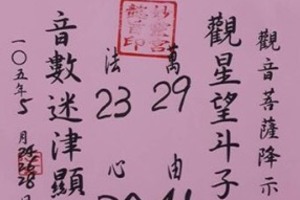 觀音菩薩降示
觀星望斗子
萬由
29
法心
23
音數迷津顯
一〇五年5月